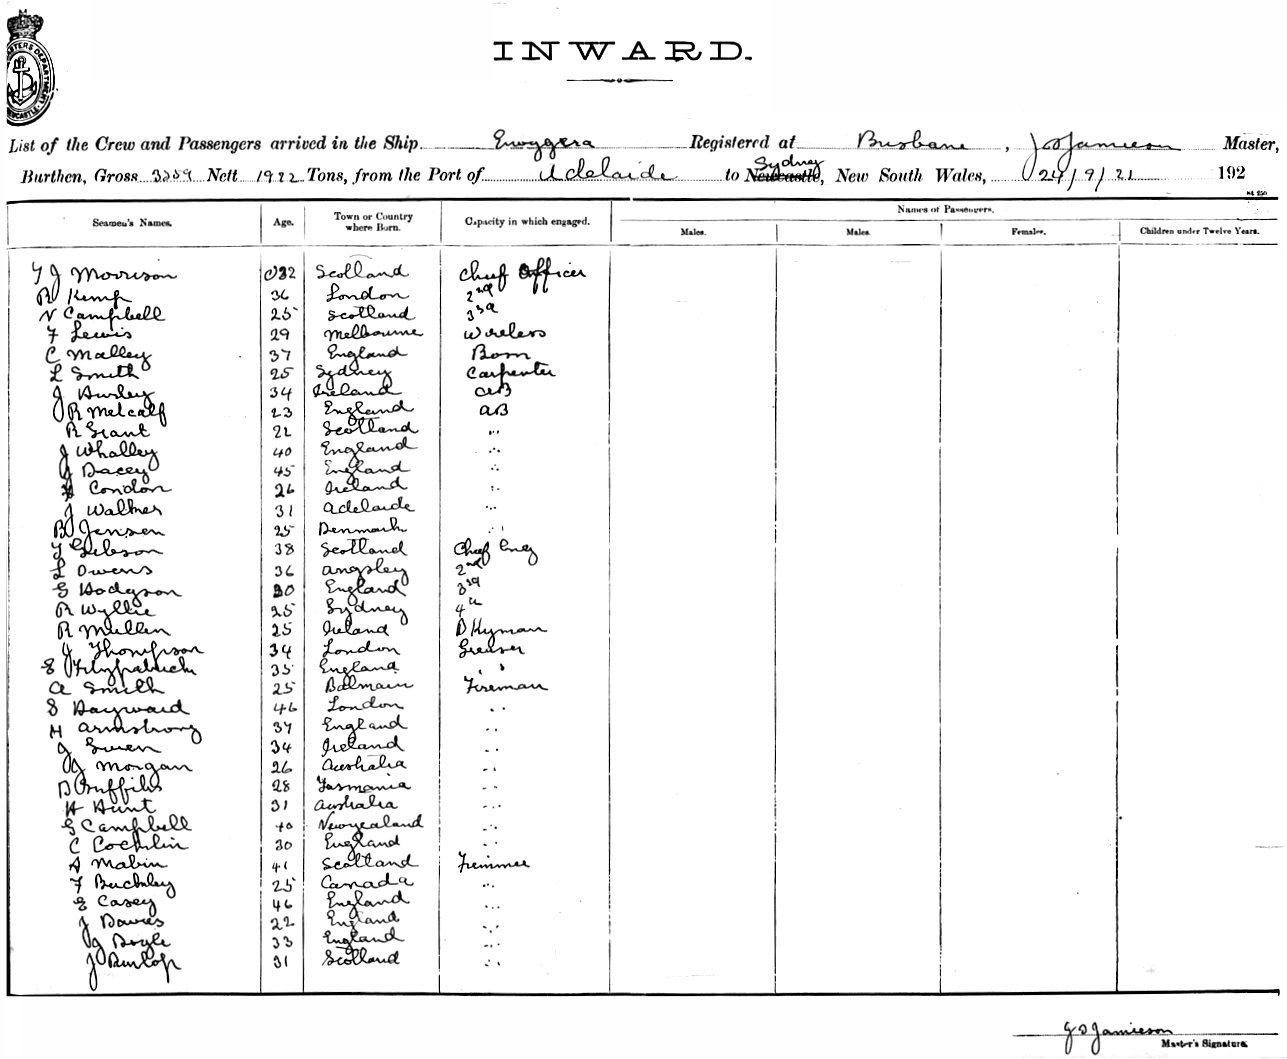 INWARD.
List of the Crew and Passengers arrived in the Ship Enoggera Registered at Brisbane, J S Jamieson Master,
Burthen, Gross 3259 Nett 1922 Tons, from the Port of Adelaide to Newcastle, Sydney New South Wales, 24/9/21 192
Seamen's Names. Age. Town or Country where Born. Capacity in which engaged. Names of Passengers.
Males. Males. Females. Children under Twelve Years.
J Morrison 32 Scotland Chief Officer
R Kemp 36 London 2nd
N Campbell 25 Scotland 3rd
F Lewis 29 Melbourne Wireless
C Malley 37 England Bosn
L Smith 25 Sydney Carpenter
J Hurley 34 Ireland AB
J R Metcalf 23 England AB
R Grant 22 Scotland "
J Whalley 40 England "
J Dacey 45 England "
Condon 26 Ireland "
J Walker 31 Adelaide "
B Jensen 25 Denmark "
Gibson 38 Scotland Chief Eng
L Owens 36 2nd
G Hodgson 30 England 3rd
R Wyllie 25 Sydney 4th
R Mullen 25 Ireland D Kyman
J Thompson 34 London Greaser
E Fitzpatrick 35 England "
A Smith 25 Balmain Fireman
S Hayward 46 London "
H Armstrong 37 England "
J 34 Ireland "
J Morgan 26 Australia "
D Griffiths 28 Tasmania "
H Hunt 31 Australia "
G Campbell 40 New zealand "
C Cochlin 30 England "
A Mabin 41 Scotland Trimmer
F Buckley 25 Canada "
E Casey 46 England "
J Davies 22 England "
J Boyle 33 England "
J Dunlop 31 Scotland "
J S Jamieson
Master's Signature.